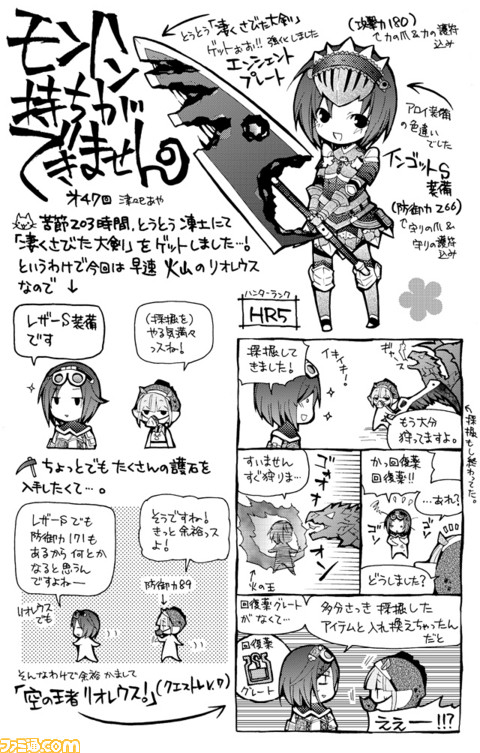 モンハン
持ちが
できません。
オ47回 津々巳あや
とうとう「凄くさびた大剣」
ゲットぉぉ!! 強化しました
エンシェント
プレート
(攻撃力180)
↑力の爪&力の護符
込み
アロイ装備
の色違い
でした
インゴットS
装備
(防御力266)
↑守りの爪&
守りの護符
込み
苦節203時間、とうとう凍土にて
「凄くさびた大剣」をゲットしました…!
というわけで今回は早速 火山のリオレウス
なので↓
ハンターランク
HR5
レザーS装備
です
(採掘を)
やる気満々
っスね!
ちょっとでもたくさんの護石を
入手したくて…。
レザーSでも
防御力171も
あるから何とか
なると思うん
ですよねー
そうですね!
きっと余裕っス
よ!
防御力89
リオレウス
でも
そんなわけで余裕かまして
「空の王者リオレウス!」(クエストLV.7)
採掘して
きました!
イキイキ!
もう大分
狩ってますよ。
←採掘もし終わってた。
すいません
すぐ狩りま…
ゴオオオン
火の王
かっ回復薬
回復薬!!
…あれ?
ゴソ
ゴソ
どうしました?
回復薬グレート
がなくて…
回復薬
グレート
多分さっき採掘した
アイテムと入れ換えちゃったん
だと
ええー!!?
ファミ通.com